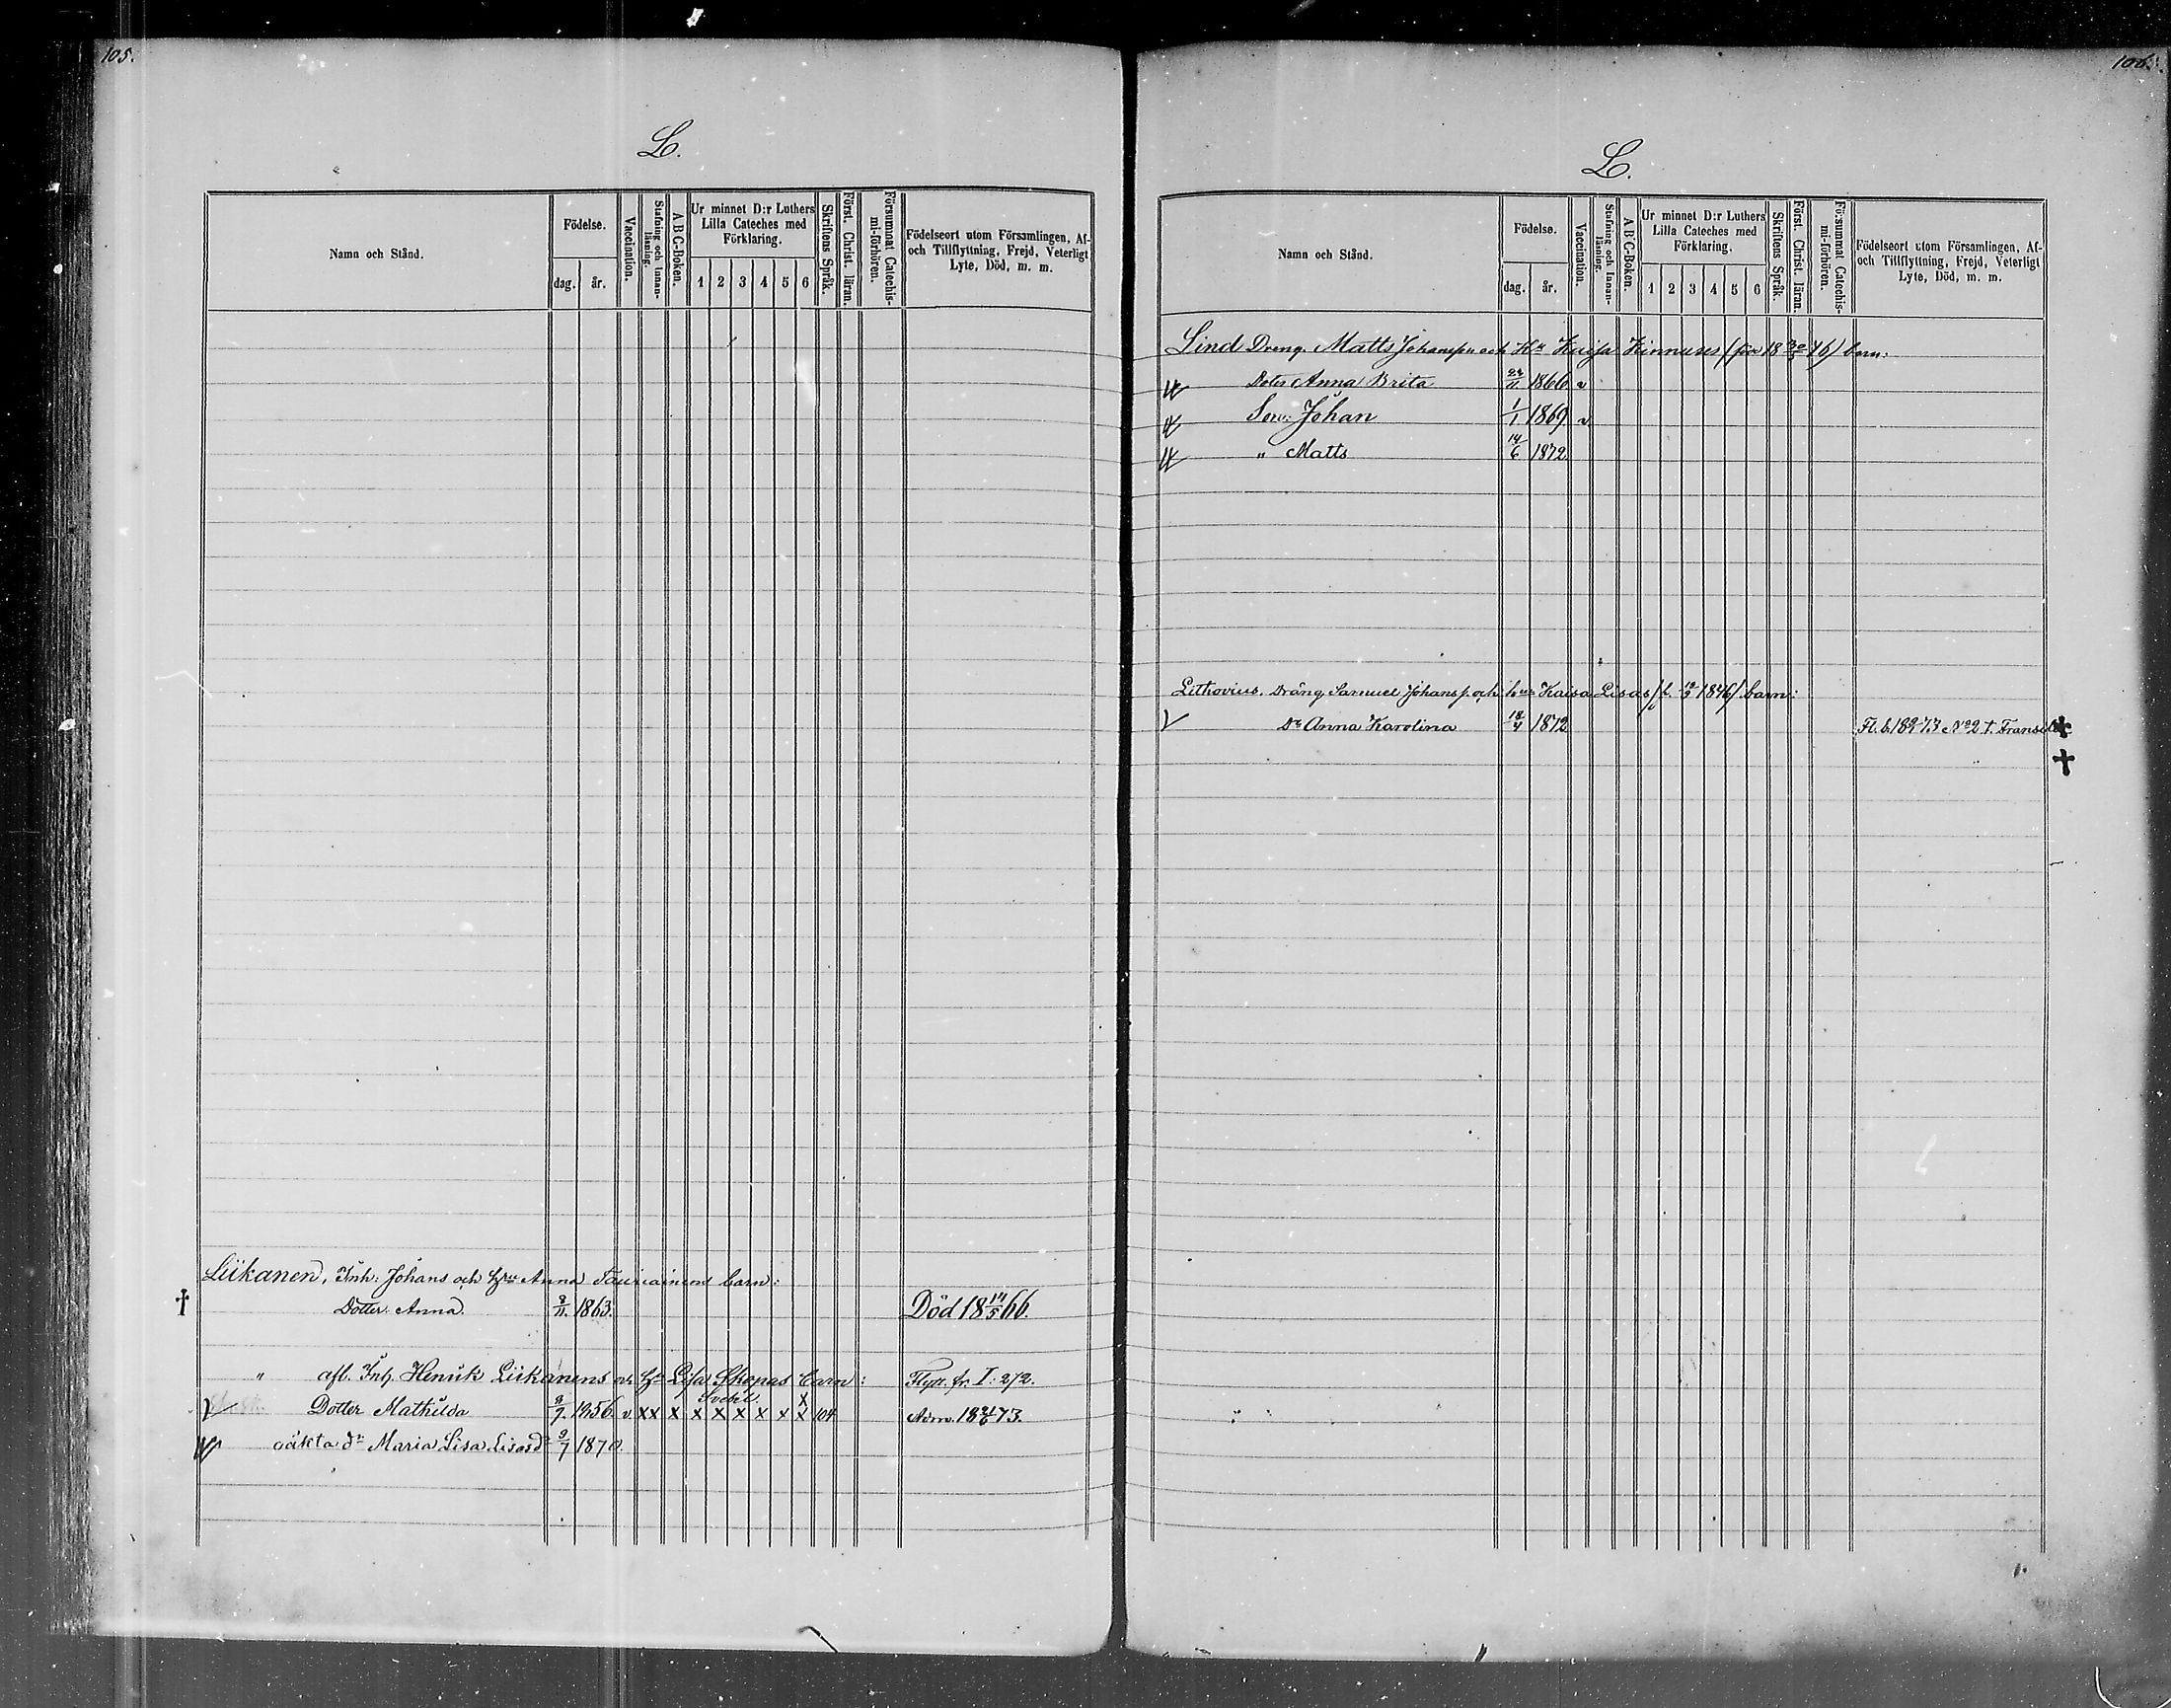 105.
L.
Namn och Stånd.
Födelse.
dag.
år.
Vaccination.
Stafning och Innan-läsning.
A B C-Boken.
Ur minnet D:r Luthers
Lilla Cateches med
Förklaring.
1 2 3 4 5 6
Skriftens Språk.
Först. Christ. läran.
Försummat Catechis-mi-förhören.
Födelseort utom Församlingen, Af-
och Tillflyttning, Frejd, Veterligt
Lyte, Död, m. m.
Liikanen, Inh: Johans och Anna Tauriainens barn:
† Dotter Anna 8/11. 1863. Död 18 14/5 66.
" afl. Inh. Henrik Liikanens och Lisa Skopas barn: Flytt. fr. I: 272.
Svebel. x
Dotter Mathilda 8/7. 1856. v xx x x x x x x x 104 Adm. 18 21/6 73.
oäkta dr Maria Lisa Lisasd 9/7 1870.
106.
L.
Namn och Stånd.
Födelse.
dag.
år.
Vaccination.
Stafning och Innan-läsning.
A B C-Boken.
Ur minnet D:r Luthers
Lilla Cateches med
Förklaring.
1 2 3 4 5 6
Skriftens Språk.
Först. Christ. läran.
Försummat Catechis-mi-förhören.
Födelseort utom Församlingen, Af-
och Tillflyttning, Frejd, Veterligt
Lyte, Död, m. m.
Lind Dreng Matts Johansson och Kaisa Kinnunes barn:
Doter Anna Brita 1866 v
Son: Johan 1/1 1869 v
" Matts 14/6 1872
Lithovius. Dräng Samuel Johans s. och hu Kaisa Lisas barn:
V Dr Anna Karolina 18/4 1872 73 No 2 t. Frantsila